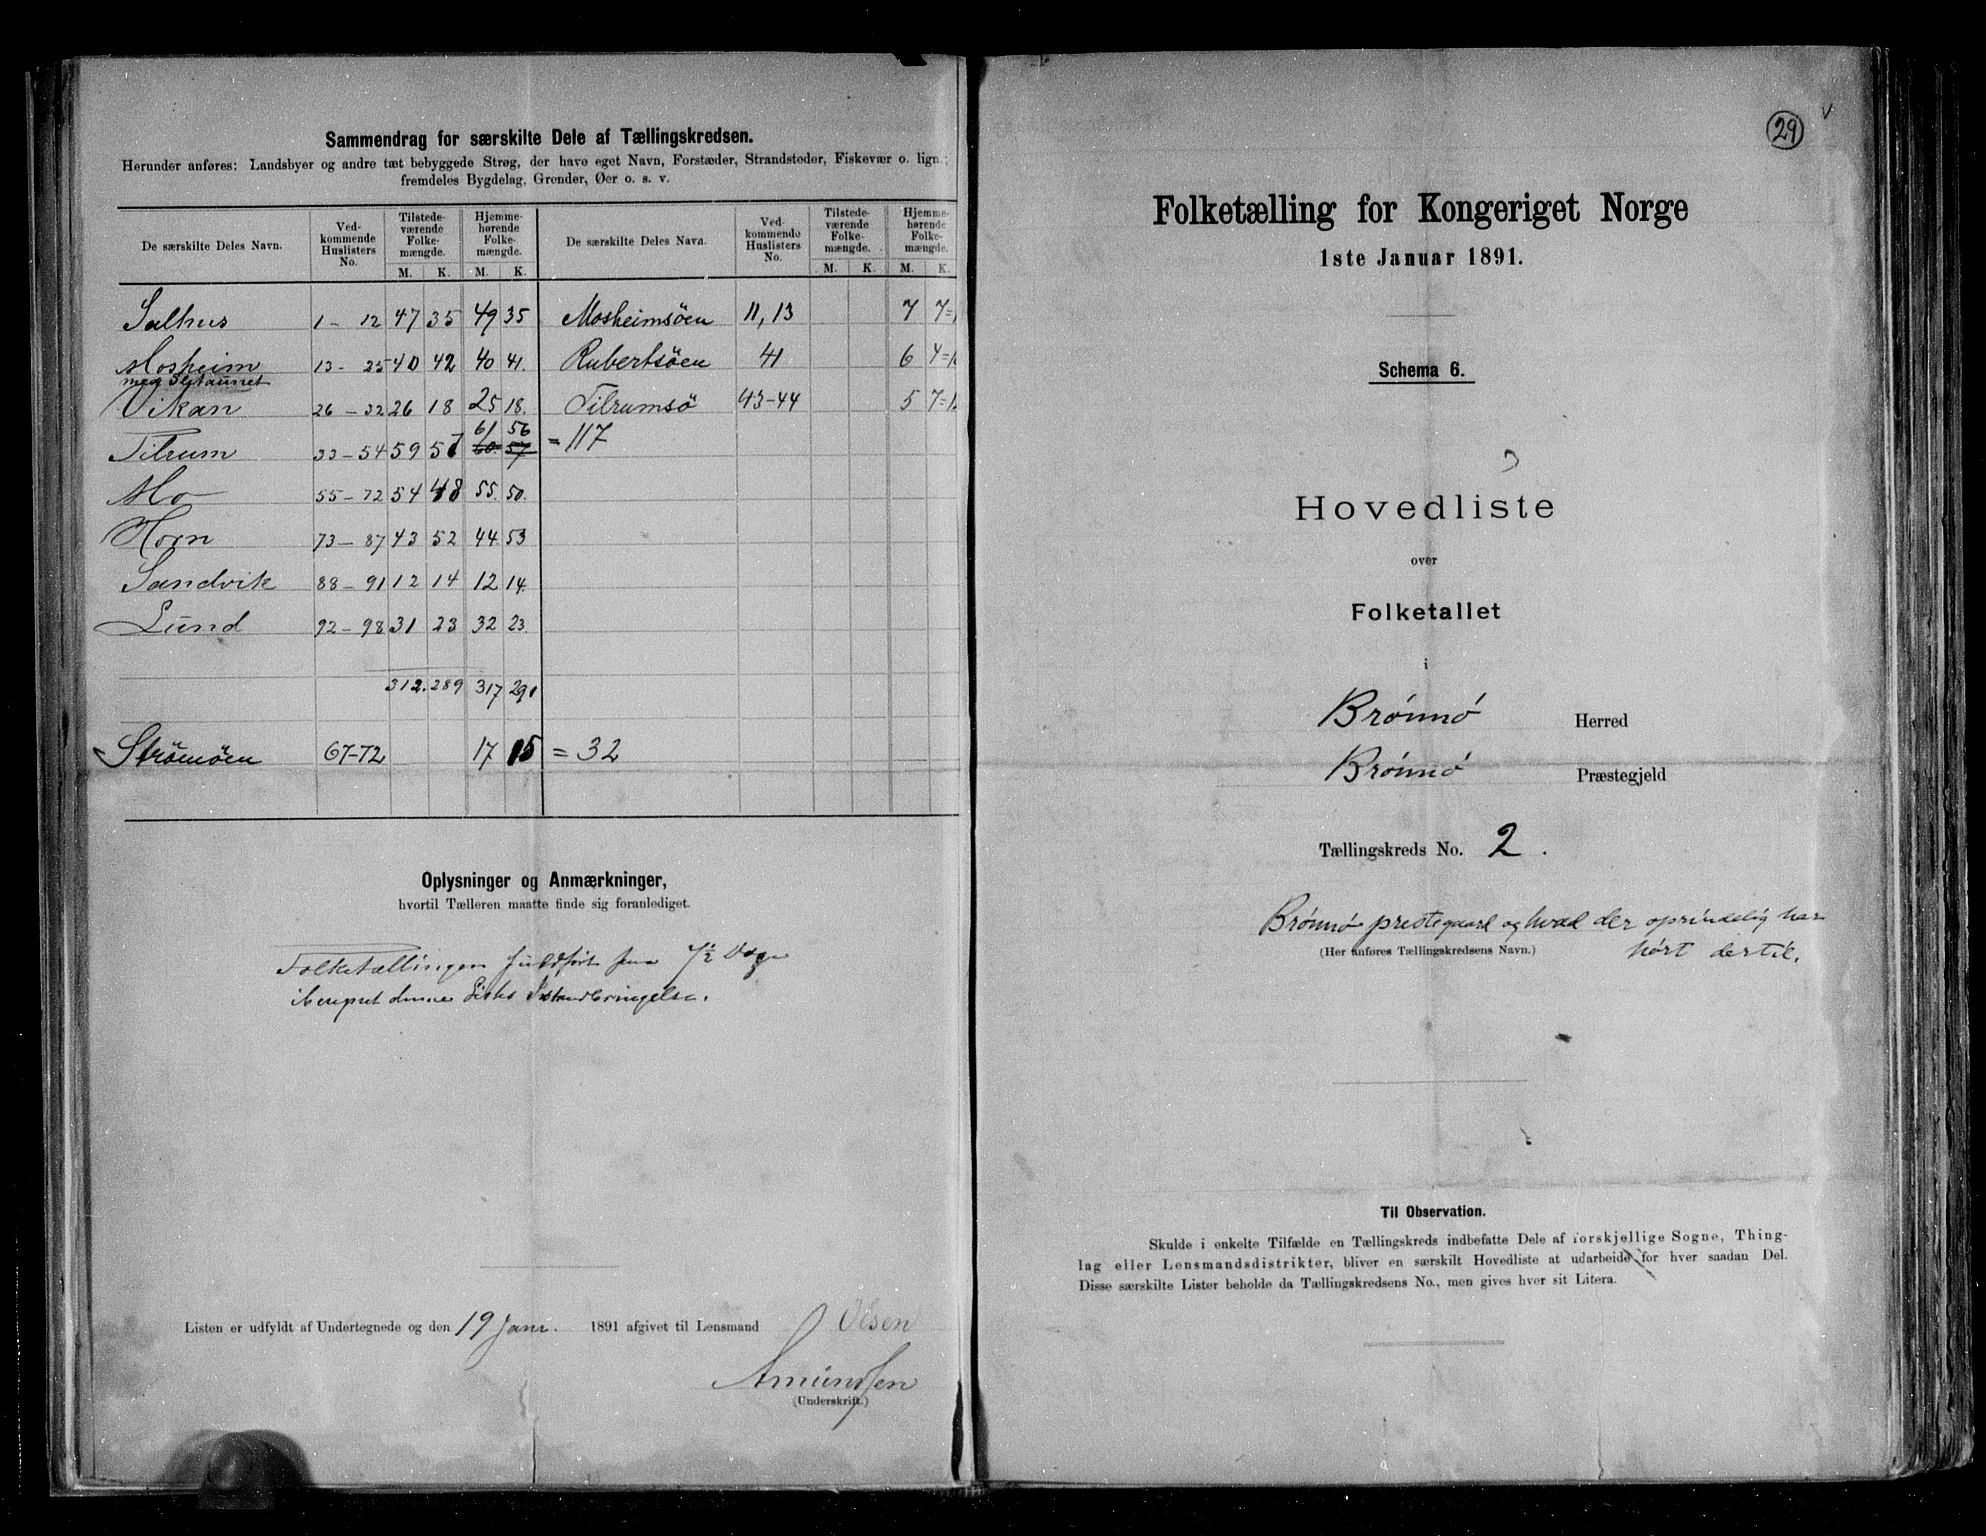 Sammendrag for særskilte Dele af Tællingskredsen.
Herunder anføres: Landsbyer og andre tæt bebyggede Strøg, der have eget Navn, Forstæder, Strandsteder, Fiskevær o. lign.;
fremdeles Bygdelag, Grender, Øer o. s. v.
De særskilte Deles Navn. Ved-kommende Huslisters No. Tilstede-værende Folke-mængde. Hjemme-hørende Folke-mængde. De særskilte Deles Navn. Ved-kommende Huslisters No. Tilstede-værende Folke-mængde. Hjemme-hørende Folke-mængde.
M. K. M. K. M. K. M. K.
Salhus 1 - 12 47 35 49 35 Mosheimsöen 11, 13 7 7=
Mosheim 13 - 25 40 42 40 41. Rubertsöen 41 6 4=
med
Vikan 26 - 32 26 18 25 18. Tilrumsö 43-44 5 7=
61 56
Tilrum 33 - 54 59 57 60. 57 = 117
Mo 55 - 72 54 48 55. 50.
Horn 73 - 87 43 52 44 53
Sandvik 88 - 91 12 14 12 14.
Lund 92 - 98 31 23 32 23.
312. 289 317 291
Strömöen 67-72 17 15 = 32
Oplysninger og Anmærkninger,
hvortil Tælleren maatte finde sig foranlediget.
Folketællingen fuldfört 7½ Dage
denne
Listen er udfyldt af Undertegnede og den 19 Janr. 1891 afgivet til Lensmand Olsen
Amundsen
(Underskrift.)
29
Folketælling for Kongeriget Norge
1ste Januar 1891.
Schema 6.
Hovedliste
over
Folketallet
i
Brönnö Herred
Brönnö Præstegjeld
Tællingskreds No. 2.
Brönnö prestegaard og hvad der oprindelig har
(Her anføres Tællingskredsens Navn.) hört dertil.
Til Observation.
Skulde i enkelte Tilfælde en Tællingskreds indbefatte Dele af forskjellige Sogne, Thing-
lag eller Lensmandsdistrikter, bliver en særskilt Hovedliste at udarbeide for hver saadan Del.
Disse særskilte Lister beholde da Tællingskredsens No., men gives hver sit Litera.